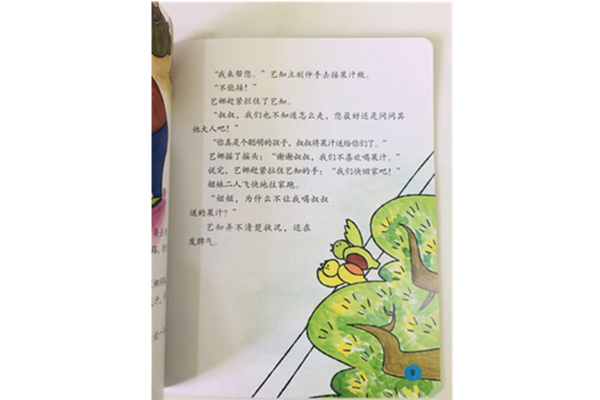 “我来帮您。”艺知立刻伸手去接果汁瓶。
“不能接！”
艺娜赶紧拉住了艺知。
“叔叔，我们也不知道怎么走，您最好还是问问其
他大人吧！”
“你真是个聪明的孩子，叔叔将果汁送给你们了。”
艺娜摇了摇头：“谢谢叔叔，我们不喜欢喝果汁。”
说完，艺娜赶紧拉住艺知的手：“我们快回家吧！”
姐妹二人飞快地往家跑。
“姐姐，为什么不让我喝叔叔
送的果汁？”
艺知弄不清楚状况，还在
发脾气。
9